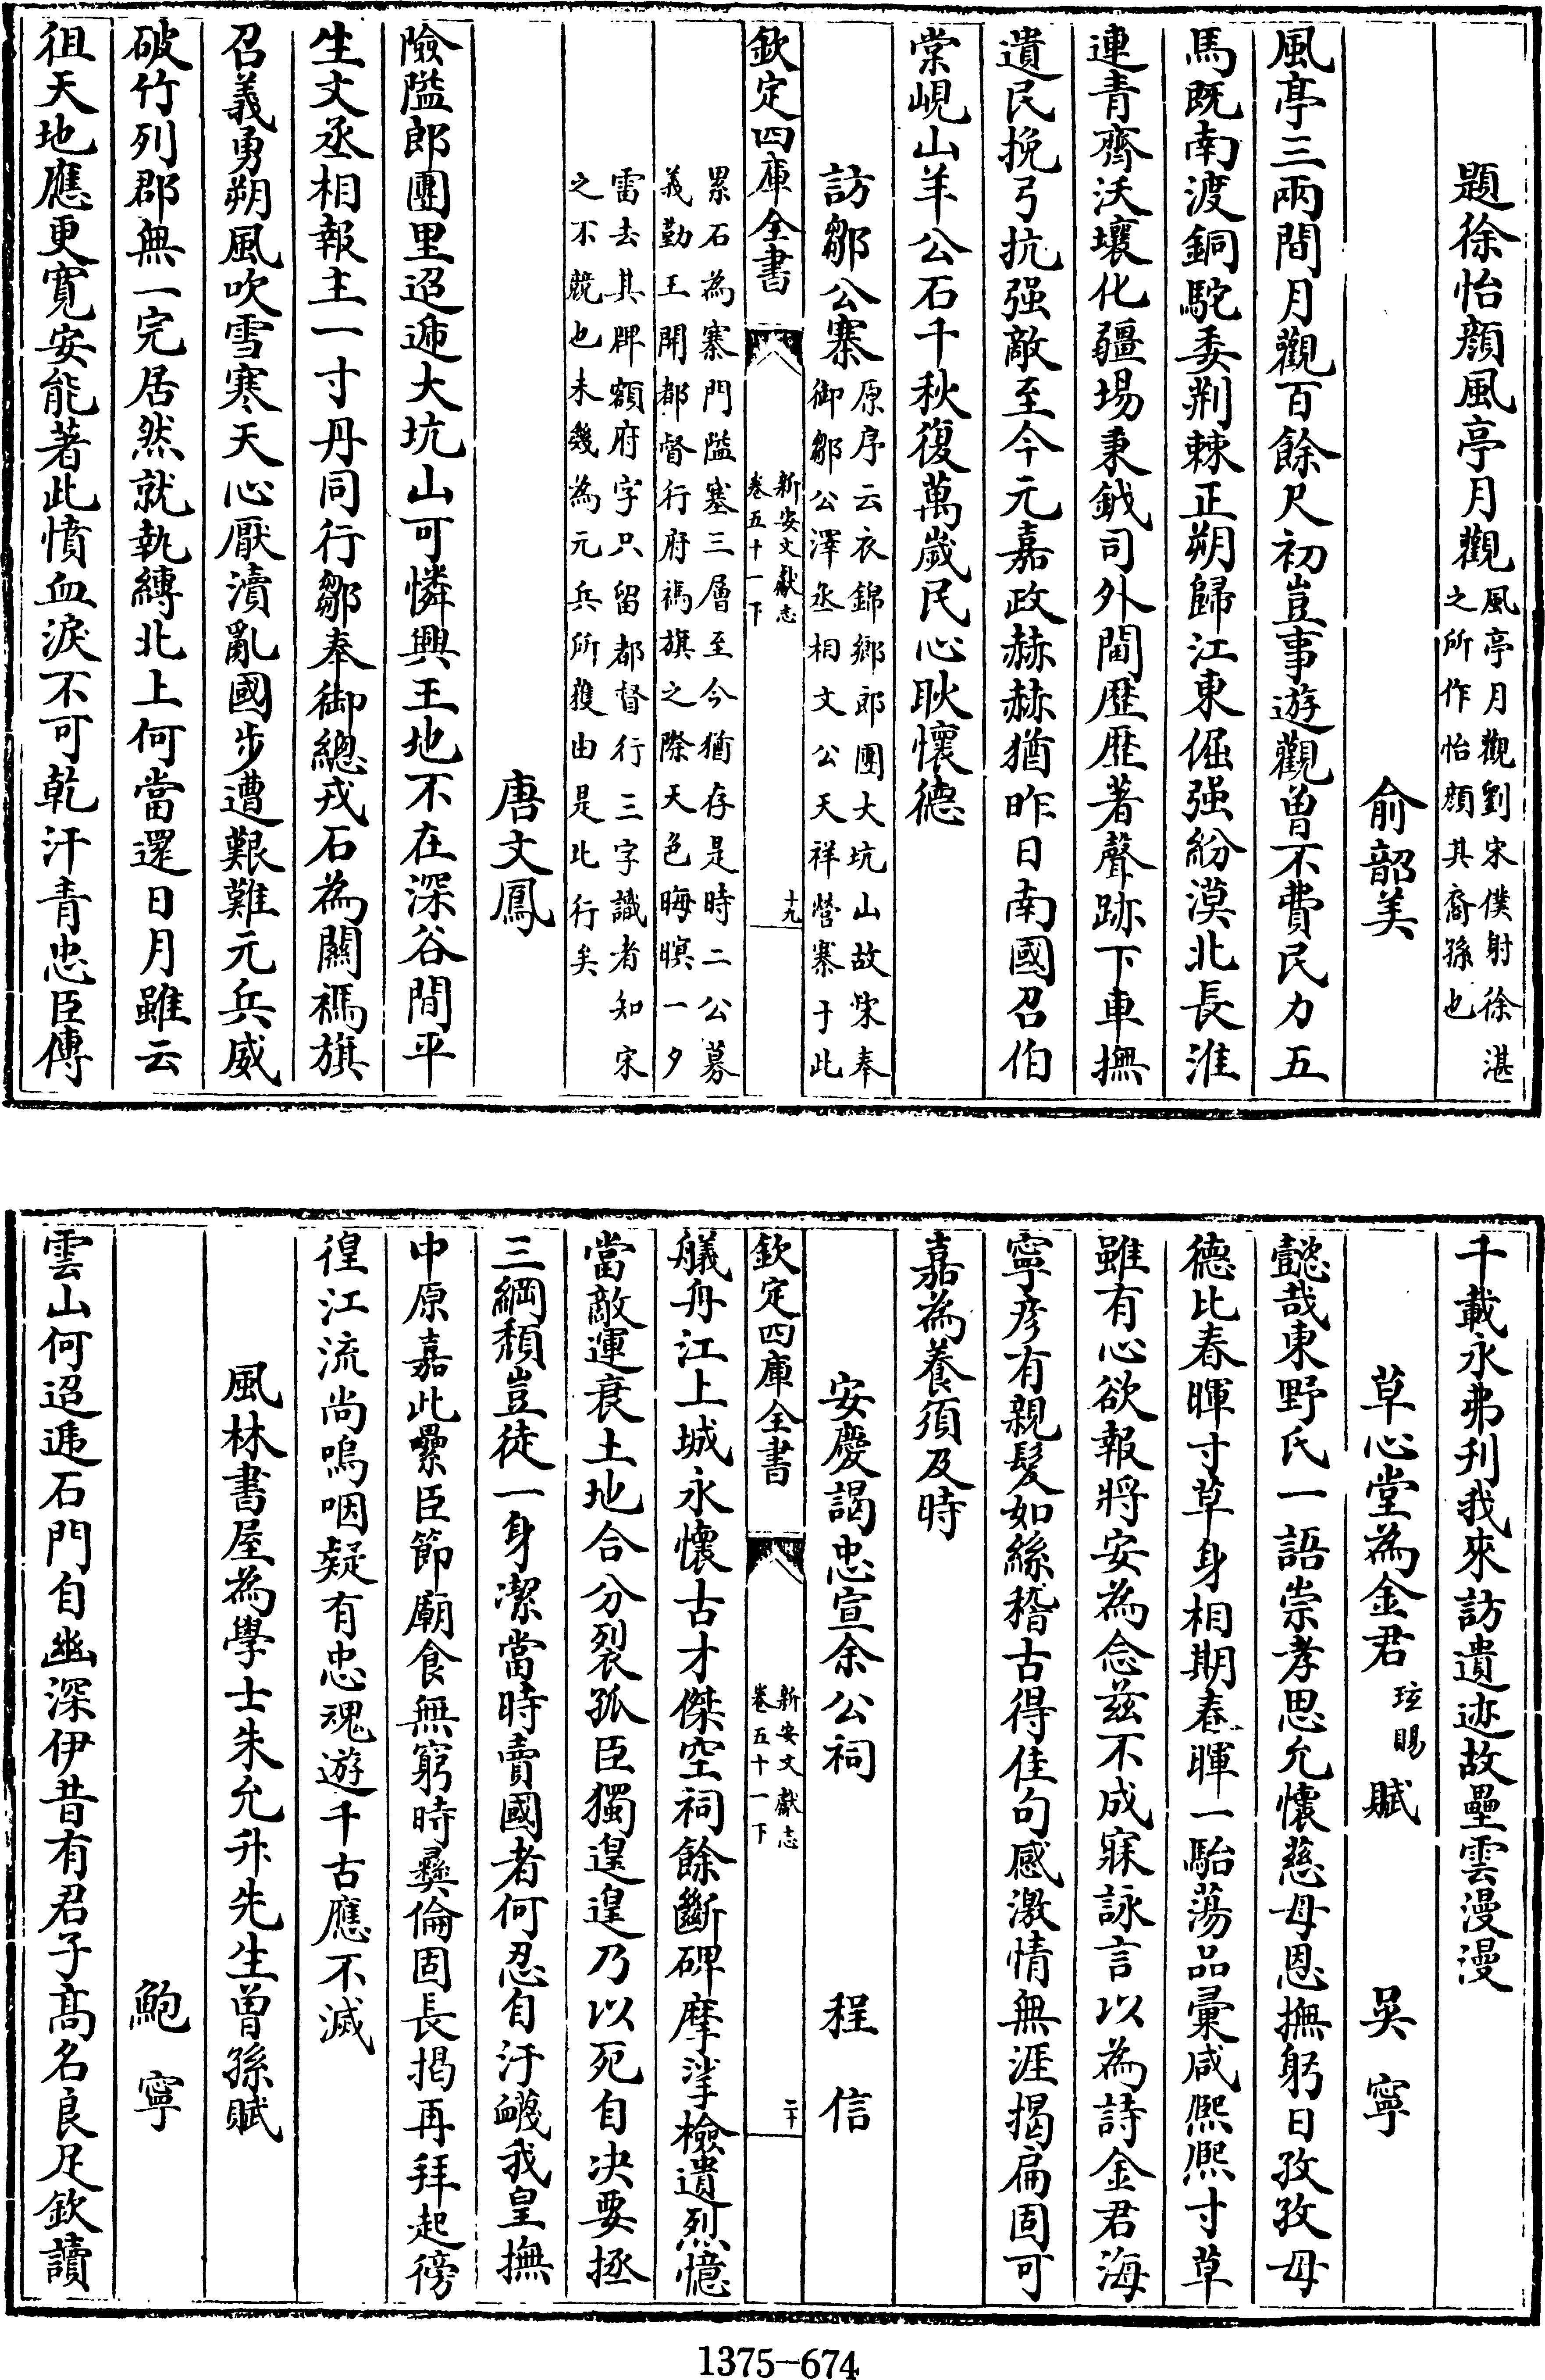 題徐怡顔風亭月觀風亭月觀劉宋僕射徐湛之所作怡顔其裔孫也
俞韶美
風亭三兩間月觀百餘尺初豈事遊觀曽不費民力五
馬既南渡銅駝委荆棘正朔歸江東倔强紛漠北長淮
連青齊沃壤化疆場秉鉞司外閫歴歴著聲跡下車撫
遺民挽弓抗强敵至今元嘉政赫赫猶昨日南國召伯
棠峴山羊公石千秋復萬嵗民心耿懷德
訪鄒公寨原序云衣錦鄉郎團大坑山故宋奉御鄒公澤丞相文公天祥營寨于此
欽定四庫全書
新安文獻志
卷五十一下
十九
累石為寨門隘塞三層至今猶存是時二公募
義勤王開都督行府禡旗之際天色晦暝一夕
雷去其牌額府字只留都督行三字識者知宋
之不競也未幾為元兵所獲由是此行矣
唐文鳳
險隘郎團里迢遞大坑山可憐興王地不在深谷間平
生文丞相報主一寸丹同行鄒奉御總戎石為關禡旗
召義勇朔風吹雪寒天心厭瀆亂國步遭艱難元兵威
破竹列郡無一完居然就執縛北上何當還日月雖云
徂天地應更寛安能著此憤血淚不可乾汗青忠臣傳
千載永弗刋我來訪遺迹故壘雲漫漫
草心堂為金君珤賜賦
吳寧
懿哉東野氏一語崇孝思允懷慈母恩撫躬日孜孜母
德比春暉寸草身相期春暉一駘蕩品彚咸熈熈寸草
雖有心欲報將安為念兹不成寐詠言以為詩金君海
寧彦有親髮如絲稽古得佳句感激情無涯揭扁固可
嘉為養須及時
安慶謁忠宣余公祠
程信
欽定四庫全書
新安文獻志
卷五十一下
二十
艤舟江上城永懷古才傑空祠餘斷碑摩挲檢遺烈憶
當敵運衰土地合分裂孤臣獨遑遑乃以死自决要拯
三綱頽豈徒一身潔當時賣國者何忍自汙衊我皇撫
中原嘉此纍臣節廟食無窮時彞倫固長揭再拜起徬
徨江流尚嗚咽疑有忠魂遊千古應不滅
風林書屋為學士朱允升先生曽孫賦
鮑寧
雲山何迢遞石門自幽深伊昔有君子髙名良足欽讀
1375-674